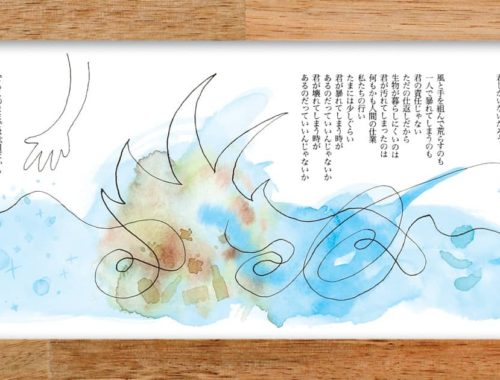 風と手を組んで荒らすのも
一人で暴れてしまうのも
君の責任じゃない
ただの仕返しだから
生物が暮らしにくいのは
君が汚れてしまったのは
何もかも人間の仕業
私たちの行い
たまには少しぐらい
君が暴れてしまう時が
あるのだっていいんじゃないか
君が壊れてしまう時が
あるのだっていいんじゃないか